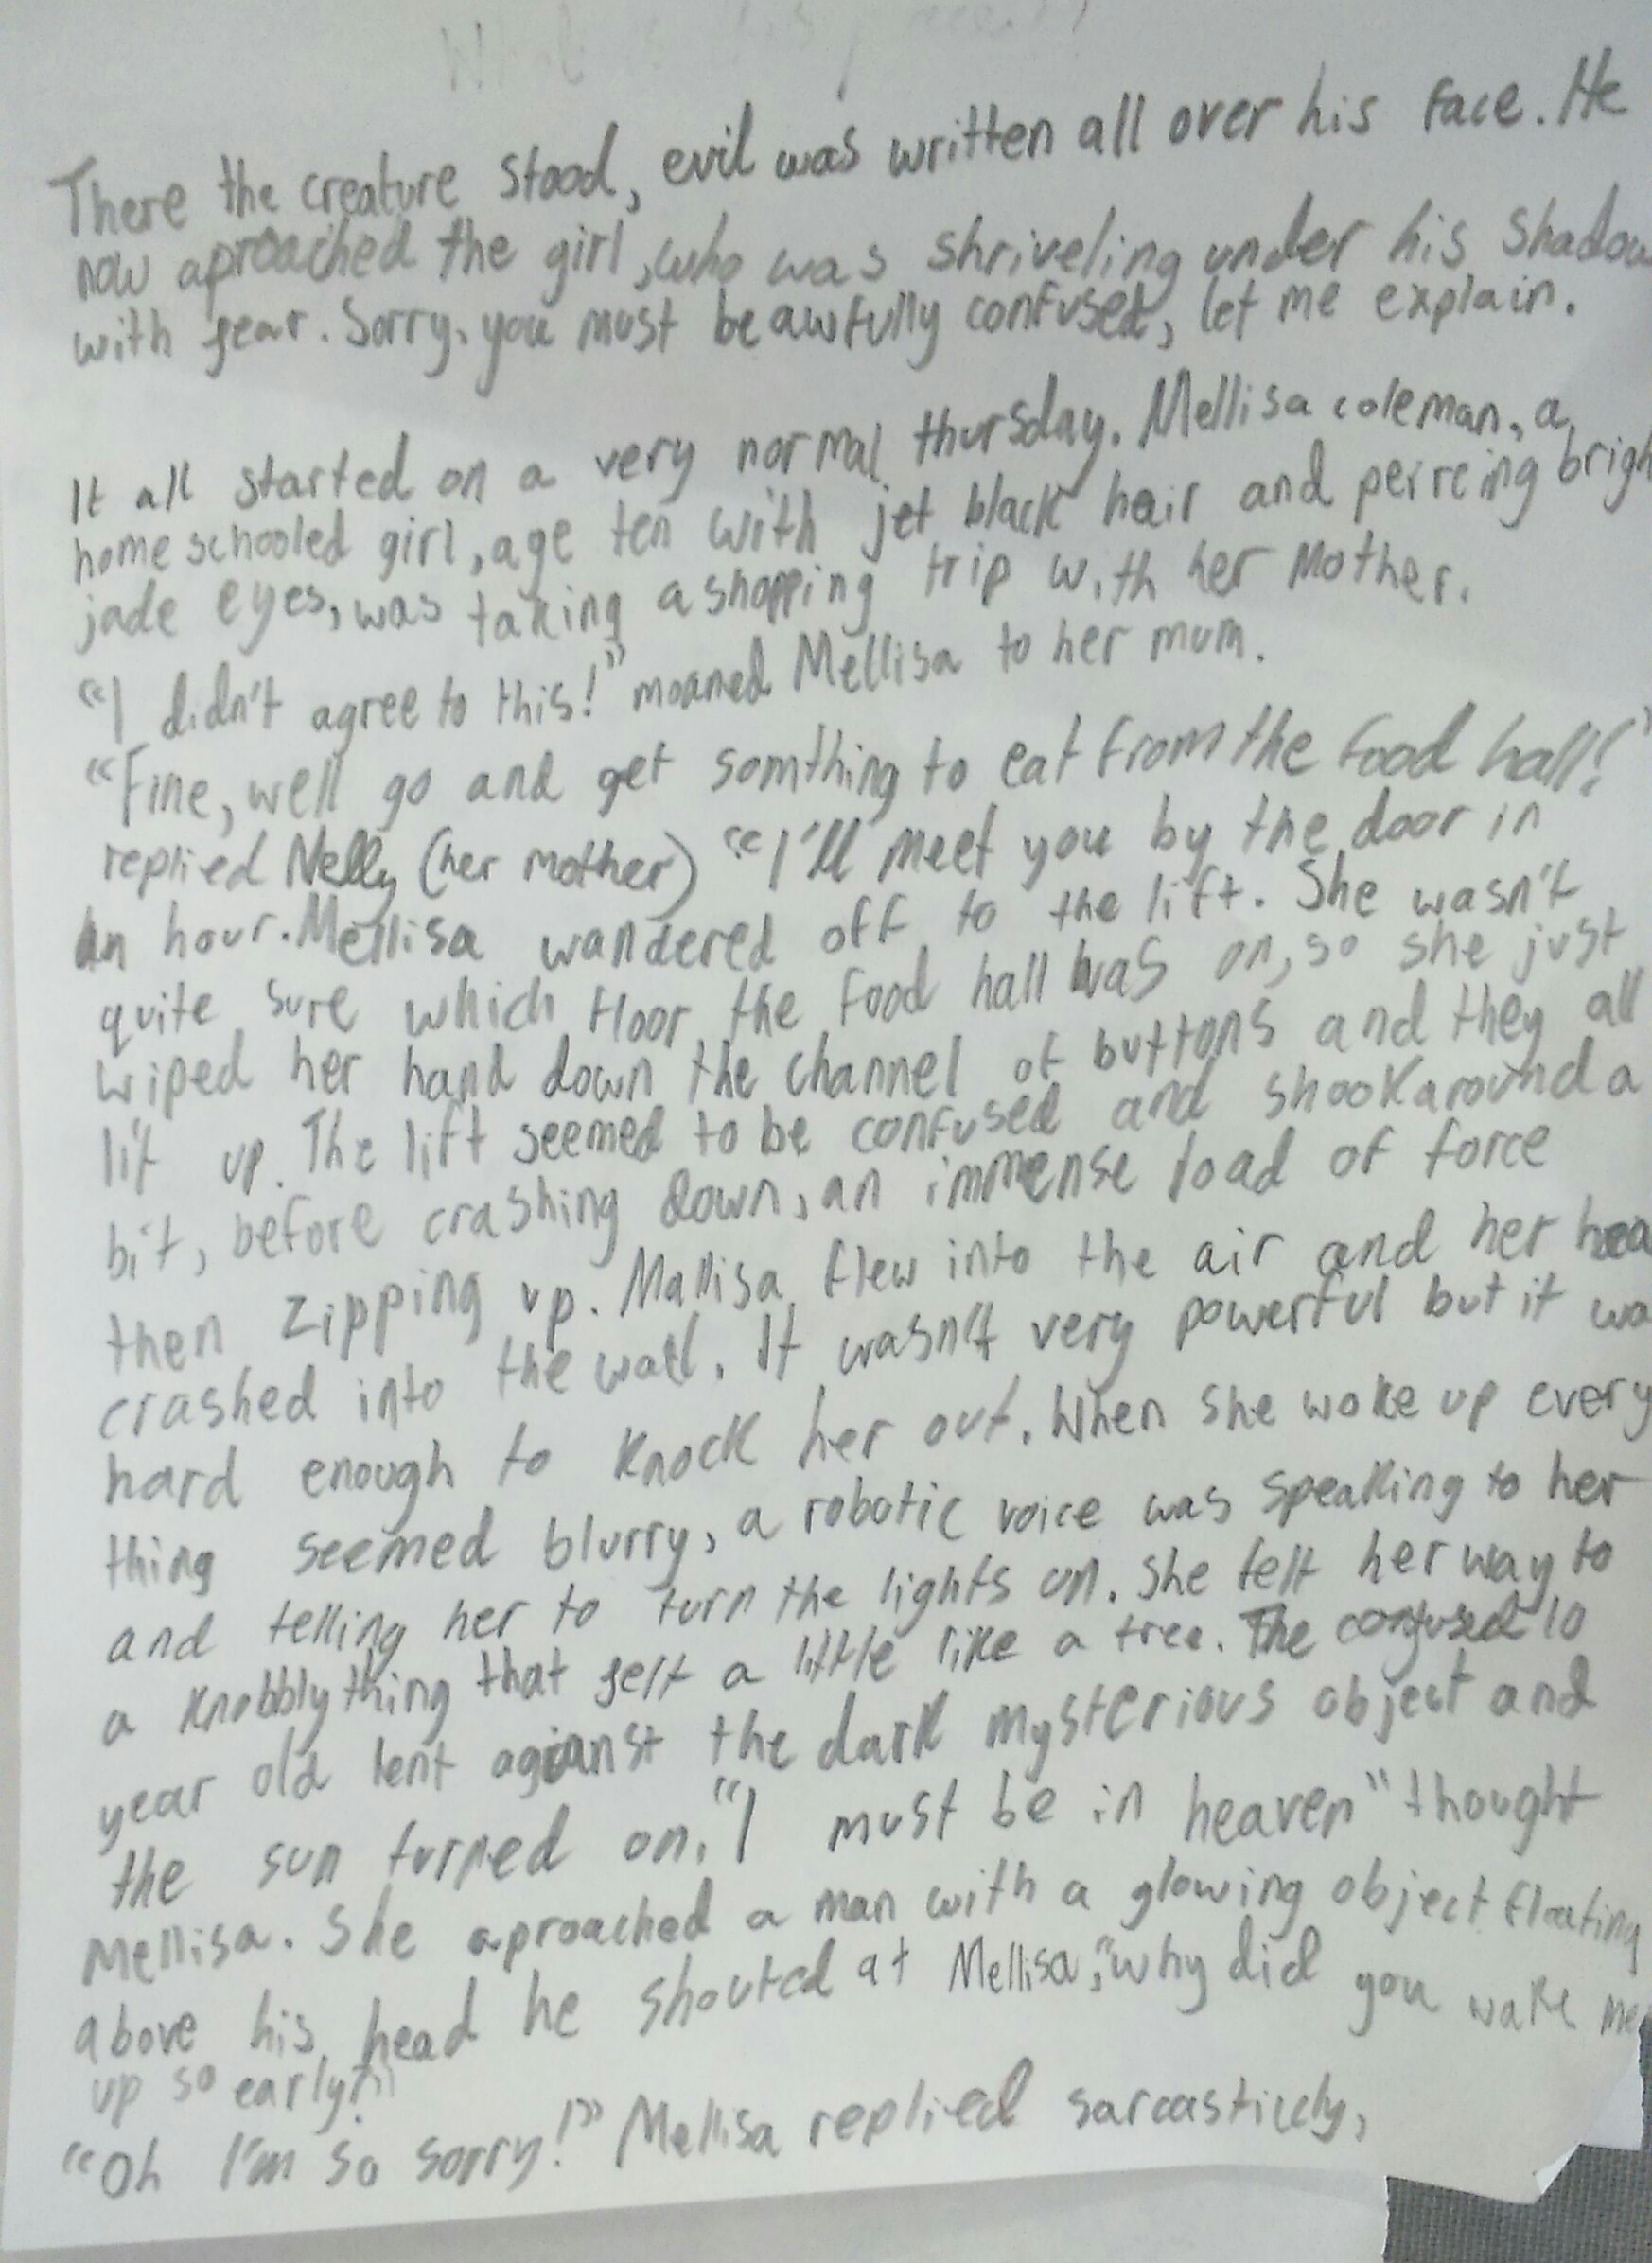 There the creature stood, evil was written all over his face. He
now aproached the girl, who was shriveling under his shadow
with fear. Sorry, you must be awfully confused, let me explain.
It all started on a very normal thursday. Mellisa coleman, a
home schooled girl, age ten with jet black hair and perrcing brigh
jade eyes, was taking a shopping trip with her Mother.
"I didn't agree to this!" moaned Mellisa to her mum.
"Fine, well go and get somthing to eat from the food hall!"
replied Nelly (her mother) "I'll meet you by the door in
an hour. Mellisa wandered off to the lift. She wasn't
quite sure which floor the food hall was on, so she just
wiped her hand down the channel of buttons and they all
lit up. The lift seemed to be confused and shook around a
bit, before crashing down, an immense load of force
then zipping up. Mallisa flew into the air and her hea
crashed into the wall. It wasn't very powerful but it wa
hard enough to knock her out. When she woke up every
thing seemed blurry, a robotic voice was speaking to her
and telling her to turn the lights on. She felt her way to
a knobbly thing that felt a little like a tree. The confused 10
year old lent agianst the dark mysterious object and
the sun turned on. "I must be in heaven" thought
Mellisa. She aproached a man with a glowing object floating
above his head he shouted at Mellisa, "why did you wake me
up so early?"
"Oh I'm so sorry!" Mellisa replied sarcasticly,